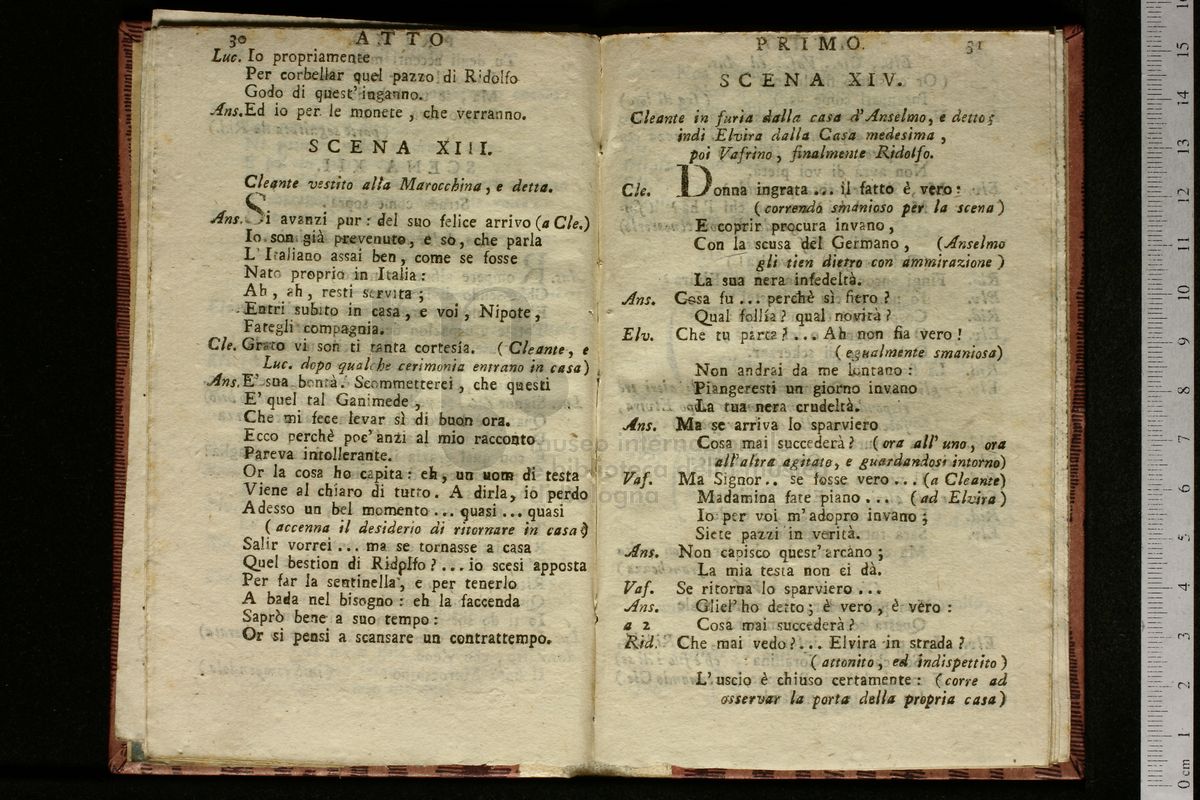 30 ATTO
Luc. Io propriamente
Per corbellar quel pazzo di Ridolfo
Godo di quest' inganno.
Ans. Ed io per le monete, che verranno.
SCENA XIII.
Cleante vestito alla Marocchina, e detta.
Ans. Si avanzi pur: del suo felice arrivo (a Cle.)
Io son già prevenuto, e sò, che parla
L' Italiano assai ben, come se fosse
Nato proprio in Italia:
Ah, ah, resti servita;
Entri subito in casa, e voi, Nipote,
Fategli compagnia.
Cle. Grato vi son ti tanta cortesìa. (Cleante, e
Luc. dopo qualche cerimonia entrano in casa)
Ans. E' sua bontà. Scommetterei, che questi
E' quel tal Ganimede,
Che mi fece levar sì di buon ora.
Ecco perchè poc' anzi al mio racconto
Pareva intollerante.
Or la cosa ho capita: eh, un uom di testa
Viene al chiaro di tutto. A dirla, io perdo
Adesso un bel momento ... quasi ... quasi
(accenna il desiderio di ritornare in casa)
Salir vorrei ... ma se tornasse a casa
Quel bestion di Ridolfo? ... io scesi apposta
Per far la sentinella, e per tenerlo
A bada nel bisogno: eh la faccenda
Saprò bene a suo tempo:
Or si pensi a scansare un contrattempo.
PRIMO. 31
SCENA XIV.
Cleante in furia dalla casa d'Anselmo, e detto;
indi Elvira dalla Casa medesima,
poi Vafrino, finalmente Ridolfo.
Cle. Donna ingrata ... il fatto è vero:
(correndo smanioso per la scena)
E coprir procura invano,
Con la scusa del Germano, (Anselmo
gli tien dietro con ammirazione)
La sua nera infedeltà.
Ans. Cosa fu ... perchè sì fiero?
Qual follìa? qual novità?
Elv. Che tu parta? ... Ah non fia vero!
(egualmente smaniosa)
Non andrai da me lontano:
Piangeresti un giorno invano
La tua nera crudeltà.
Ans. Ma se arriva lo sparviero
Cosa mai succederà? (ora all' uno, ora
all'altra agitato, e guardandosi intorno)
Vaf. Ma Signor .. se fosse vero ... (a Cleante)
Madamina fate piano ... (ad Elvira)
Io per voi m' adopro invano;
Siete pazzi in verità.
Ans. Non capisco quest' arcano;
La mia testa non ci dà.
Vaf. Se ritorna lo sparviero ...
Ans. Gliel' ho detto; è vero, è vero:
a 2 Cosa mai succederà?
Rid. Che mai vedo? ... Elvira in strada?
(attonito, ed indispettito)
L'uscio è chiuso certamente: (corre ad
osservar la porta della propria casa)
museo internazionale
e biblioteca della musica
bologna
15
14
13
12
11
10
9
8
7
6
5
4
3
2
1
0 cm